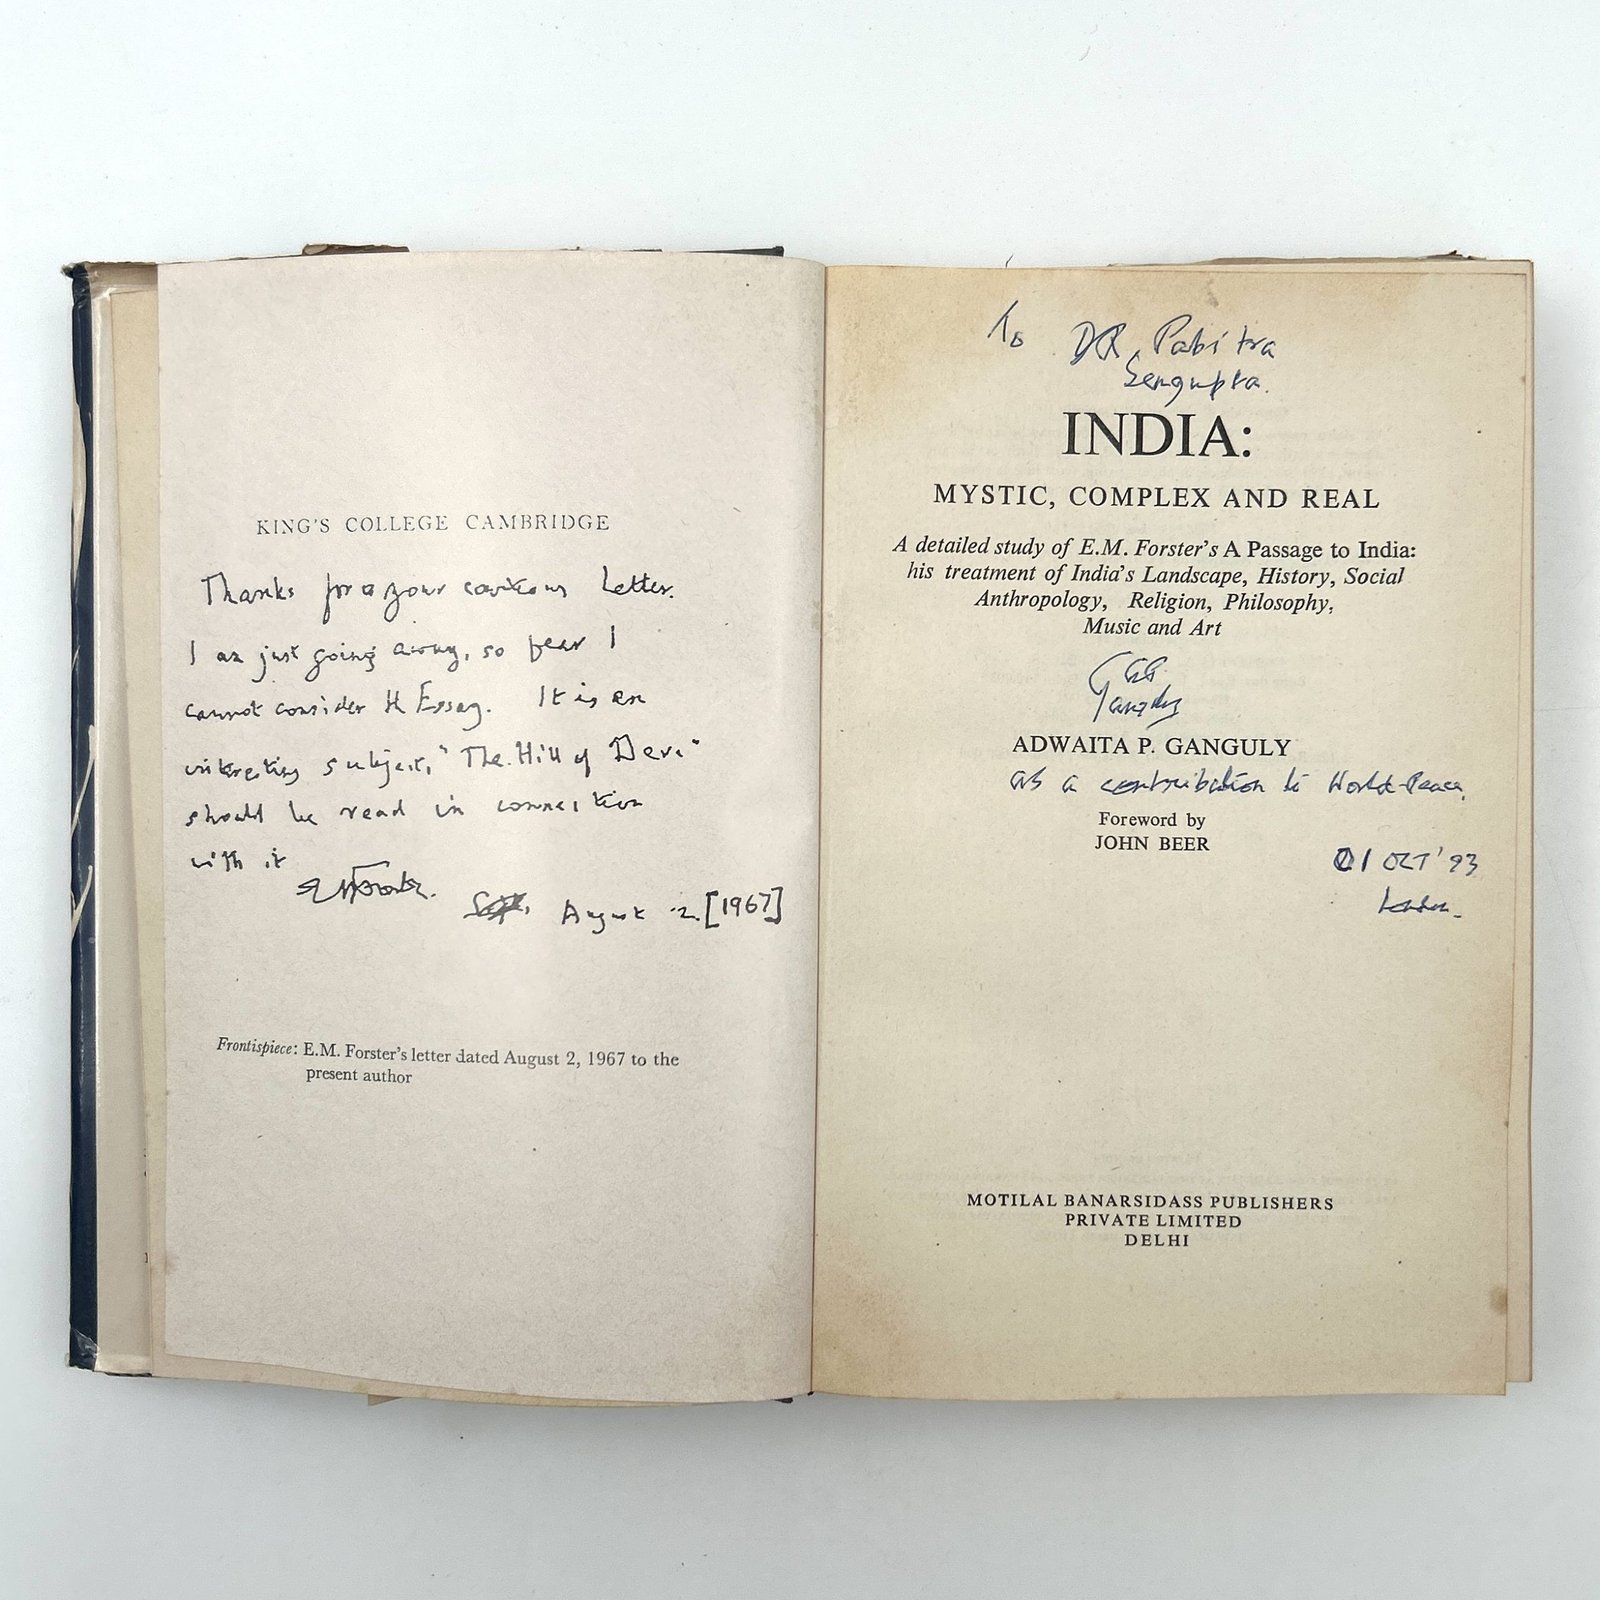 KING'S COLLEGE CAMBRIDGE
Thanks for your courteous letter.
I am just going away, so fear I
cannot consider th Essay. It is an
interesting subject, "The Hill of Devi"
should be read in connection
with it
EMForster.
August 2. [1967]
Frontispiece: E.M. Forster's letter dated August 2, 1967 to the
present author
To DR Pabitra
Sengupta.
INDIA:
MYSTIC, COMPLEX AND REAL
A detailed study of E.M. Forster's A Passage to India:
his treatment of India's Landscape, History, Social
Anthropology, Religion, Philosophy,
Music and Art
Ganguly
ADWAITA P. GANGULY
as a contribution to World-Peace,
Foreword by
JOHN BEER
01 OCT '93
London.
MOTILAL BANARSIDASS PUBLISHERS
PRIVATE LIMITED
DELHI